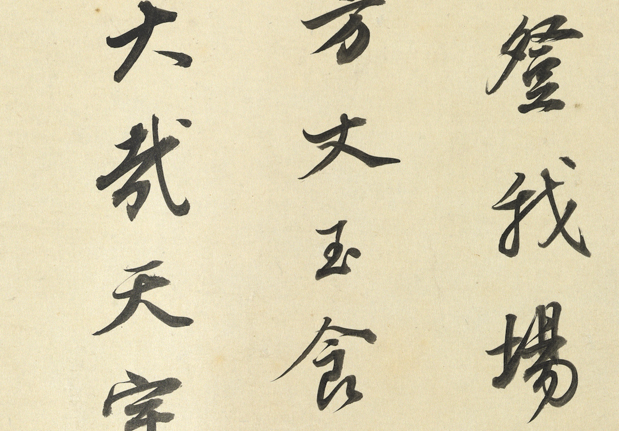 登我場
方丈玉食
大哉天宇